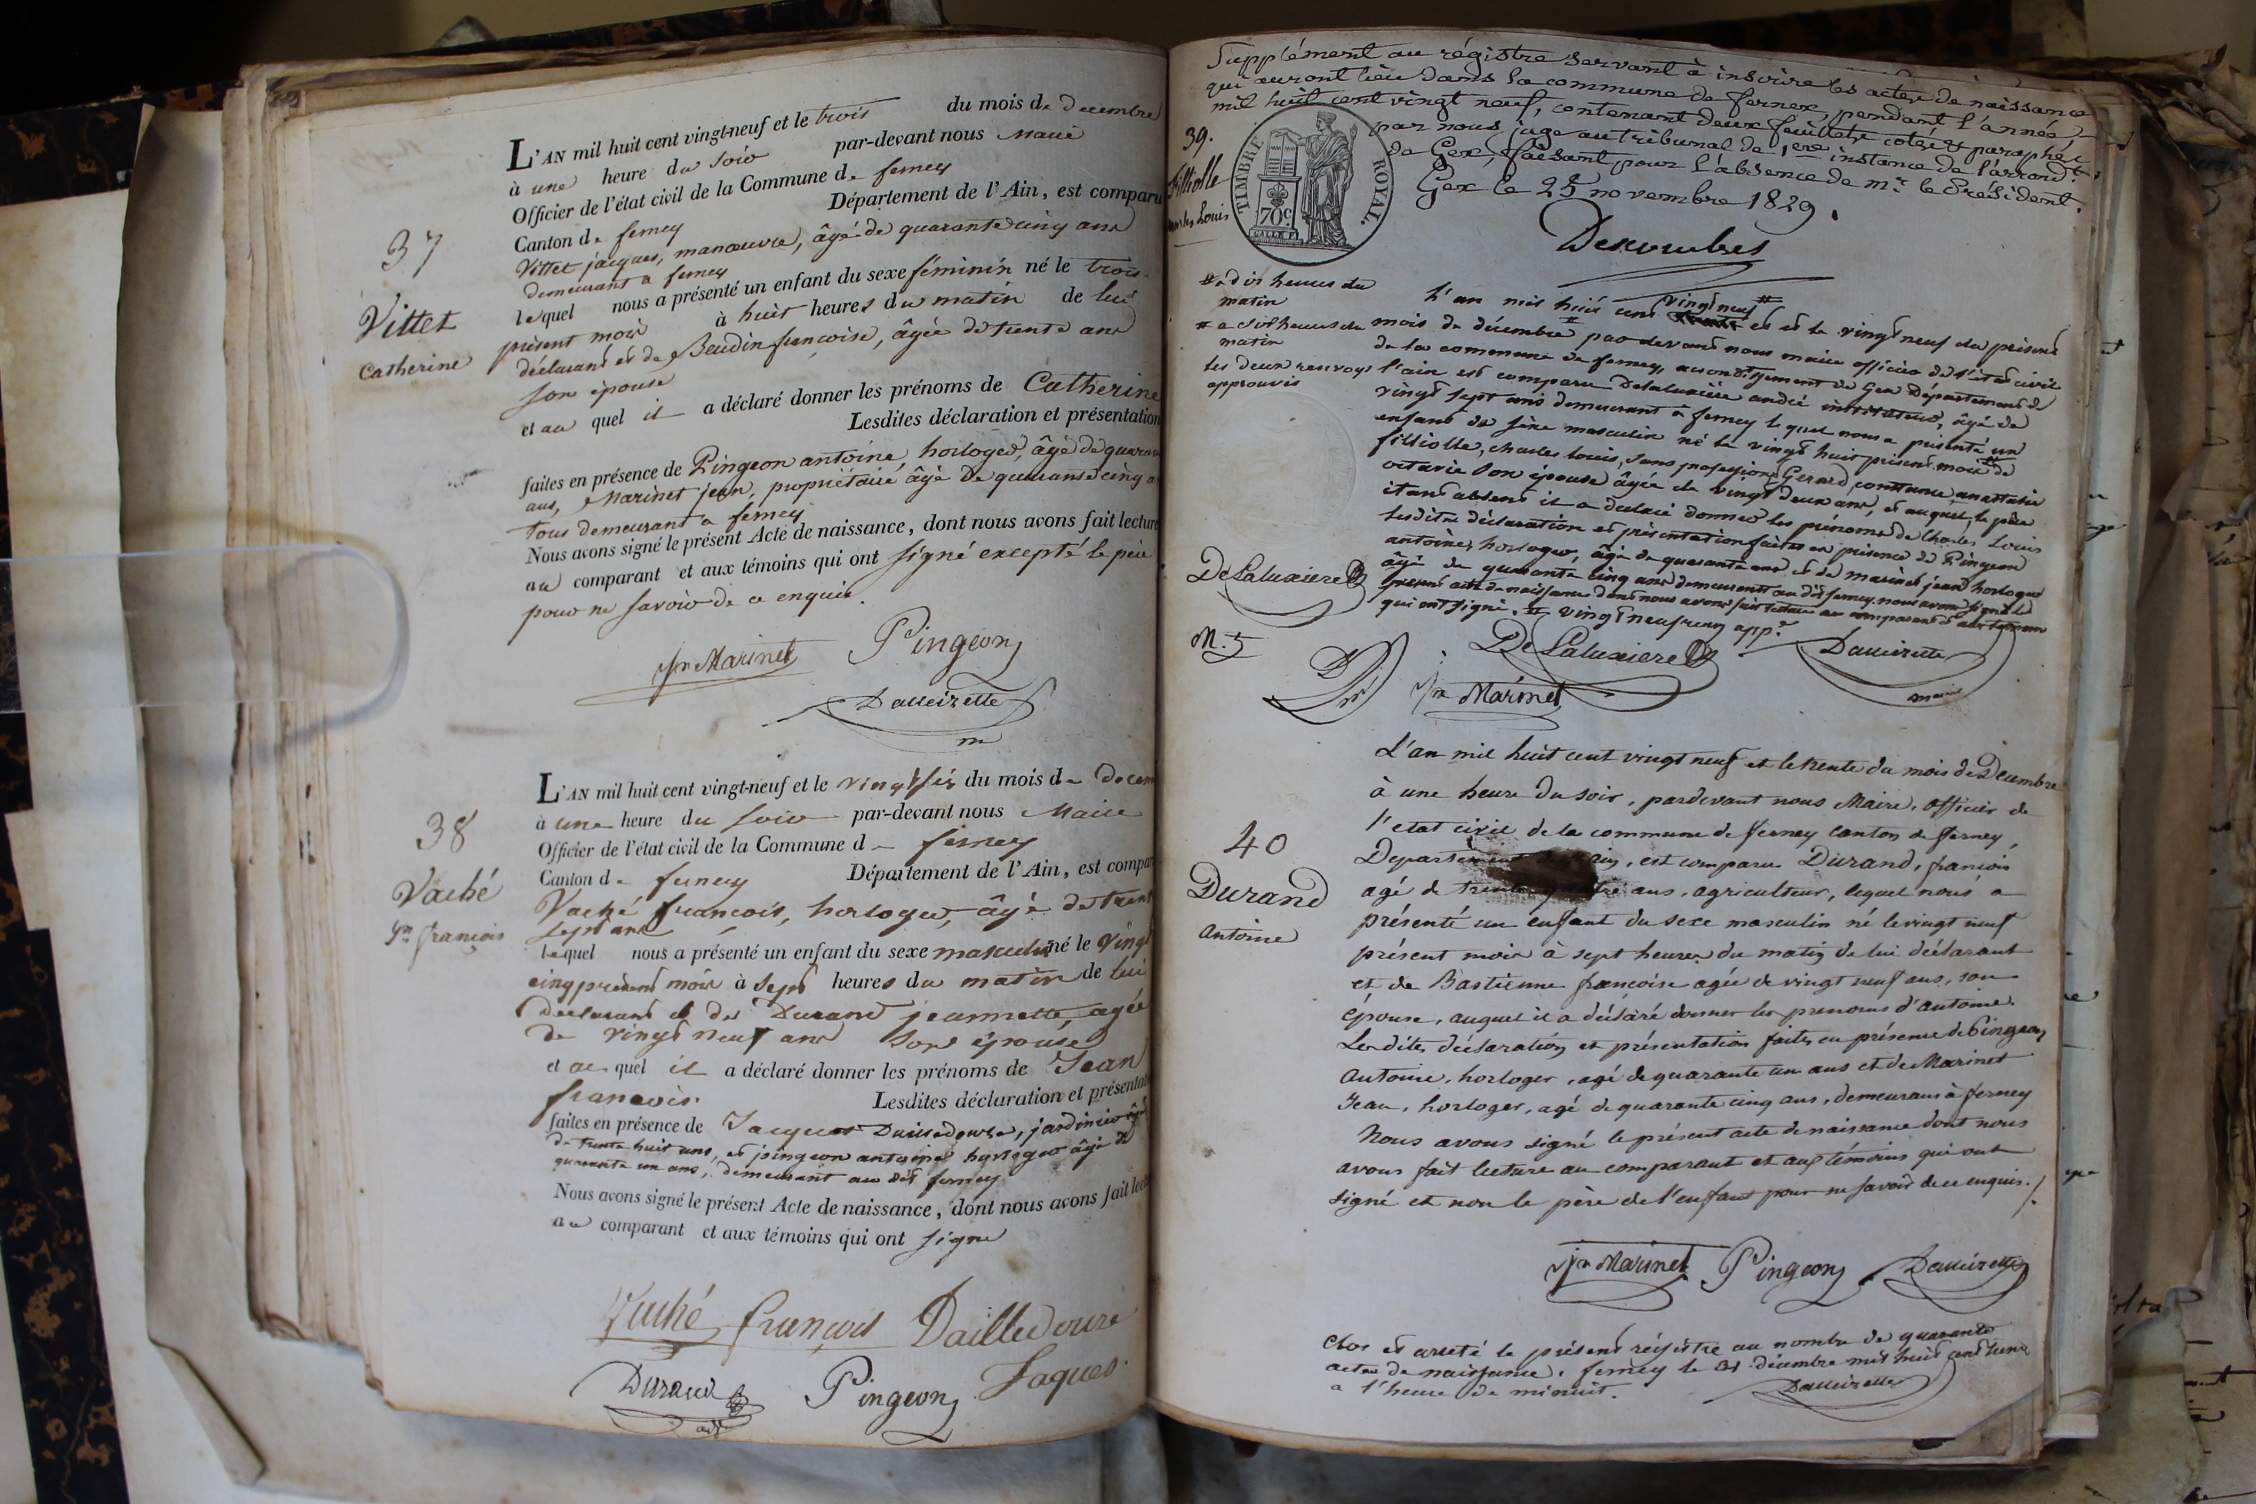 L'AN mil huit cent vingt-neuf et le trois du mois de decembre
à une heure du soir par-devant nous Maire
Officier de l'état civil de la Commune de ferney
Canton de ferney Département de l'Ain, est comparu
Vittet jacques, manœuvre, âgé de quarante cinq ans
demeurant a ferney
lequel nous a présenté un enfant du sexe féminin né le trois
présent mois à huit heures du matin de lui
déclarant et de Beudin françoise, âgée de trente ans
son épouse
et au quel il a déclaré donner les prénoms de Catherine
Lesdites déclaration et présentation
faites en présence de Pingeon antoine, horloger, âgé de
ans, Marinet jean, propriétaire âgé de quarante cinq
tous demeurant a ferney
Nous avons signé le présent Acte de naissance, dont nous avons fait lecture
au comparant et aux témoins qui ont signé excepté le père
pour ne savoir de ce enquis.
37
Vittet
Catherine
Jn Marinet Pingeon
Dalleizette
m
L'AN mil huit cent vingt-neuf et le vingt six du mois de decem
à une heure du soir par-devant nous Maire
Officier de l'état civil de la Commune d ferney
Canton de ferney Département de l'Ain, est compar
Vaché françois, horloger, âgé de trent
sept ans
lequel nous a présenté un enfant du sexe masculin né le vingt
cinq présent mois à sept heures du matin de lui
déclarant et de Durand jeannette, agée
de vingt neuf ans son épouse
et au quel il a déclaré donner les prénoms de Jean
françois. Lesdites déclaration et présentat
faites en présence de Jacques Dailledouze, jardinier âgé
de trente huit ans, et pingeon antoine horloger âgé de
quarante un ans, demeurant au dit ferney
Nous avons signé le présent Acte de naissance, dont nous avons fait lect
au comparant et aux témoins qui ont signé
38
Vaché
Jn françois
Vaché françois Dailledouze
Jaques.
Durand Pingeon
adjt
Supplément au régistre servant à inscrire les actes de naissance
qui auront lieu dans la commune de fernex, pendant l'année
mil huit cent vingt neuf, contenant deux feuillets cotés et paraphés
par nous, juge au tribunal de 1ere instance de l'arrondt
de Gex, faisant pour l'absence de mr le Président.
Gex le 25 novembre 1829.
39.
filliolle
charles Louis
TIMBRE ROYAL
70c
Desroubes
# a dix heures du
matin
# a dix heures du
matin
les deux renvoys
approuvés
L'an mil huit cent vingt neuf # et le vingt neuf du présent
mois de décembre # par devant nous maire officier de l'état civil
de la commune de ferney, arrondissement de Gex Département de
l'ain est comparu Delaluxiere andré instituteur, âgé de
vingt sept ans demeurant à ferney lequel nous a présenté un
enfant du sèxe masculin né le vingt huit présent mois # de
filliolle, charles louis, sans profession, Gerard constance anastasie
octavie son épouse âgée de vingt deux ans, et auquel, le père
étant absent il a déclaré donner les prénoms de Charles Louis
lesdites déclaration et présentation faites en présence de Pingeon
antoine, horloger, âgé de quarante ans et de marinet jean horloger
âgé de quarante cinq ans demeurants au dit ferney. nous avons signé le
présent acte de naissance dont nous avons fait lecture au comparant et aux témoins
qui ont signé. # vingt neuf app.
DeLaluxiere
M. 5
DeLaluxiere Dalleizette
Jn Marinet maire
L'an mil huit cent vingt neuf et le trente du mois de Decembre
à une heure du soir, pardevant nous Maire, officier de
l'etat civil de la commune de ferney canton de ferney,
Departement ain, est comparu Durand, françois
agé de trente ans, agriculteur, lequel nous a
présenté un enfant du sexe masculin né le vingt neuf
présent mois à sept heures du matin de lui déclarant
et de Bastienne françoise agée de vingt neuf ans, son
épouse, auquel il a déclaré donner les prenoms d'antoine.
Les dites déclaration et présentation faites en présence de Pingeon
Antoine, horloger, agé de quarante un ans et de Marinet
Jean, horloger, agé de quarante cinq ans, demeurans à ferney
Nous avons signé le présent acte de naissance dont nous
avons fait lecture au comparant et aux témoins qui ont
signé et non le père de l'enfant pour ne savoir de ce enquis.
40
Durand
Antoine
Jn Marinet Pingeon Dalleizette
Clos et arreté le présent régistre au nombre de quarante
actes de naissance. ferney le 31 décembre mil huit cent
a l'heure de minuit.
Dalleizette